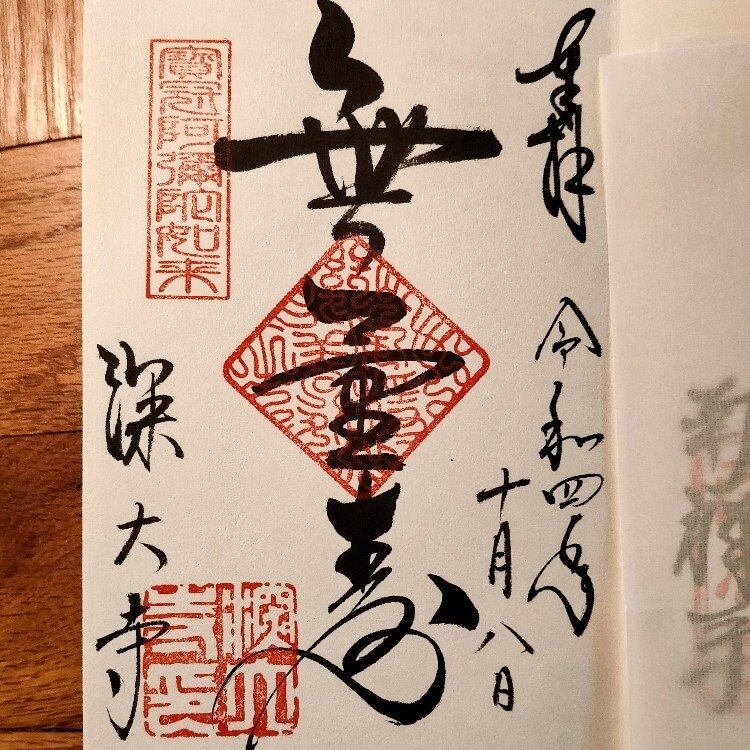 奉拝
令和四年
十月八日
無量寿
寶冠阿彌陀如来
深大寺
深大
寺印